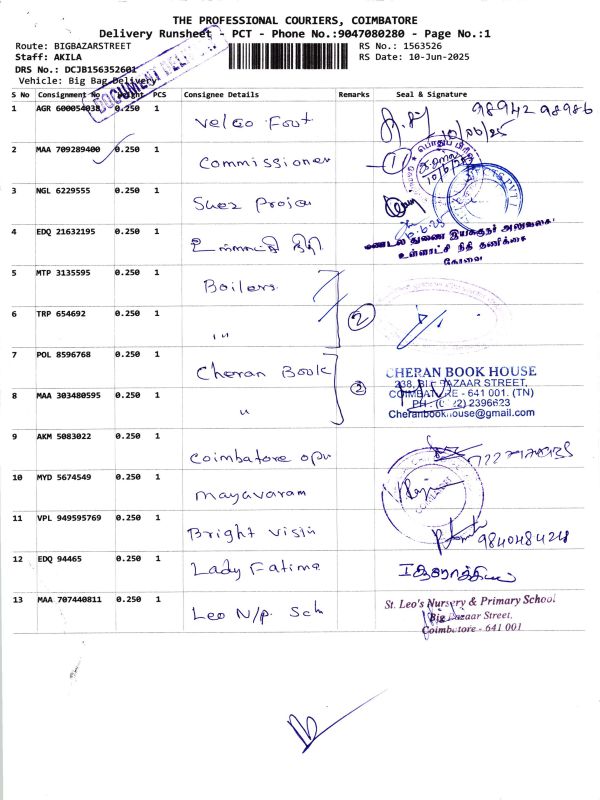 THE PROFESSIONAL COURIERS, COIMBATORE
Delivery Runsheet - PCT - Phone No.:9047080280 - Page No.:1
Route: BIGBAZARSTREET
RS No.: 1563526
Staff: AKILA
RS Date: 10-Jun-2025
DRS No.: DCJB156352601
Vehicle: Big Bag Delivery
DOCUMENT
S No Consignment No Weight PCS Consignee Details Remarks Seal & Signature
1 AGR 600054038 0.250 1 Velco Foot 98942 98986
10/06/25
2 MAA 709289400 0.250 1 Commissioner 1
3 NGL 6229555 0.250 1 Suez Projec
4 EDQ 21632195 0.250 1 உள்ளாட்சி நிதி
மண்டல துணை இயக்குநர் அலுவலகம்
உள்ளாட்சி நிதி தணிக்கை
கோவை
5 MTP 3135595 0.250 1 Boilers
2
6 TRP 654692 0.250 1 "
7 POL 8596768 0.250 1 Cheran Book
2
CHERAN BOOK HOUSE
238, BIG BAZAAR STREET,
8 MAA 303480595 0.250 1 "
COIMBATORE - 641 001. (TN)
PH : (0422) 2396623
Cheranbookhouse@gmail.com
9 AKM 5083022 0.250 1 Coimbatore opti
10 MYD 5674549 0.250 1 Mayavaram
11 VPL 949595769 0.250 1 Bright Visin
9840484248
12 EDQ 94465 0.250 1 Lady Fatima
13 MAA 707440811 0.250 1 Leo N/p. Sch
St. Leo's Nursery & Primary School
Big Bazaar Street,
Coimbatore - 641 001